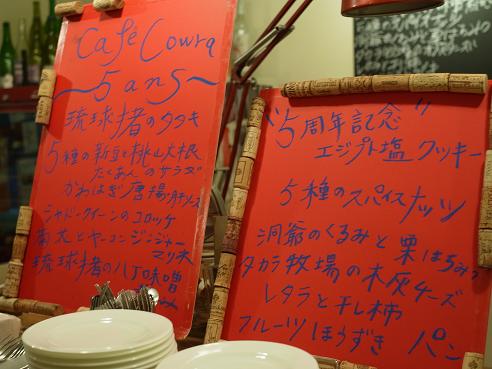 Café Cowra
～5 ans～
琉球猪のタタキ
5種の新豆と桃山大根
たくあんのサラダ
かわはぎ唐揚肝ソース
シャドークイーンのコロッケ
菊芋とヤーコンジンジャー
マリネ
琉球猪の八丁味噌
煮込み
"5周年記念"
エジプト塩クッキー
5種のスパイスナッツ
洞爺のくるみと栗はちみつ
タカラ牧場の木灰チーズ
レタラと干し柿
フルーツほうずき パン